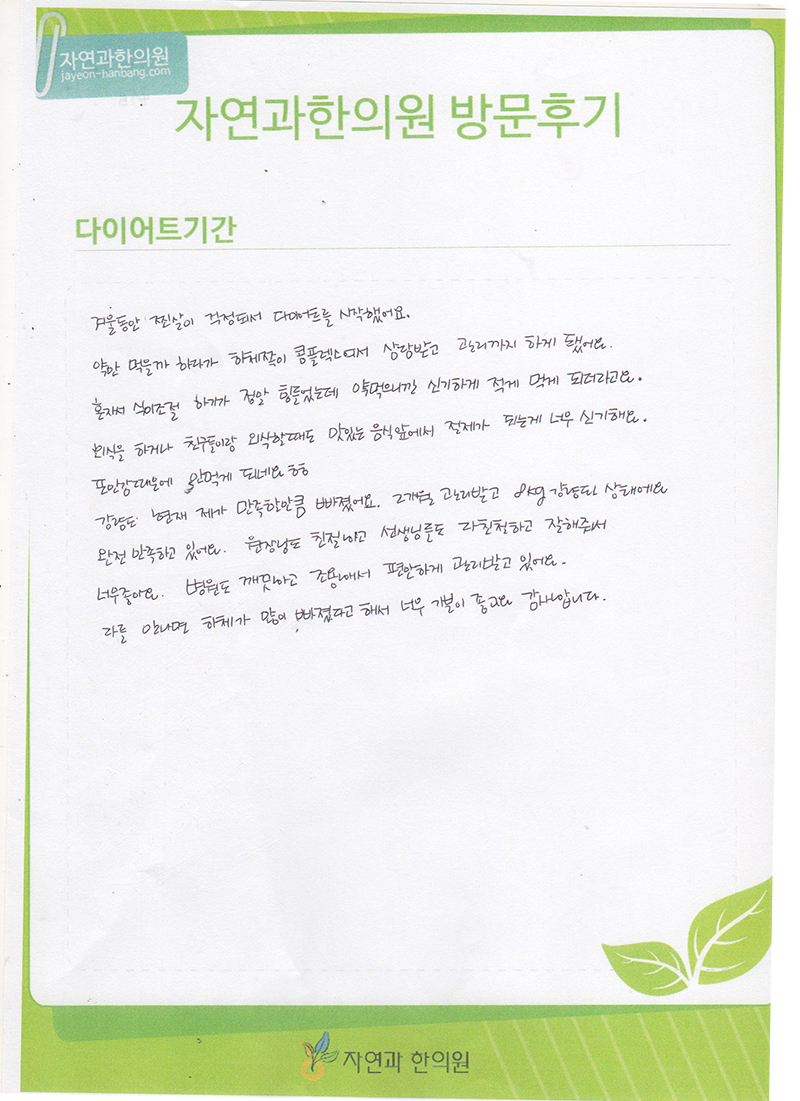 자연과한의원
jayeon-hanbang.com
자연과한의원 방문후기
다이어트기간
겨울동안 찐살이 걱정되서 다이어트를 시작했어요.
약만 먹을까 하다가 하체쪽이 콤플렉스여서 상담받고 관리까지 하게 됐어요.
혼자서 식이조절 하기가 정말 힘들었는데 약먹으니깐 신기하게 적게 먹게 되더라고요.
외식을 하거나 친구들이랑 외식할때도 맛있는 음식앞에서 절제가 되는게 너무 신기해요.
포만감때문에 안먹게 되네요 ㅎㅎ
감량도 현재 제가 만족할만큼 빠졌어요. 2개월 관리받고 8kg 감량된 상태에요
완전 만족하고 있어요. 원장님도 친절하고 선생님들도 다친절하고 잘해줘서
너무좋아요. 병원도 깨끗하고 조용해서 편안하게 관리받고 있어요.
다들 만나면 하체가 많이 빠졌다고 해서 너무 기분이 좋고요 감사합니다.
자연과 한의원